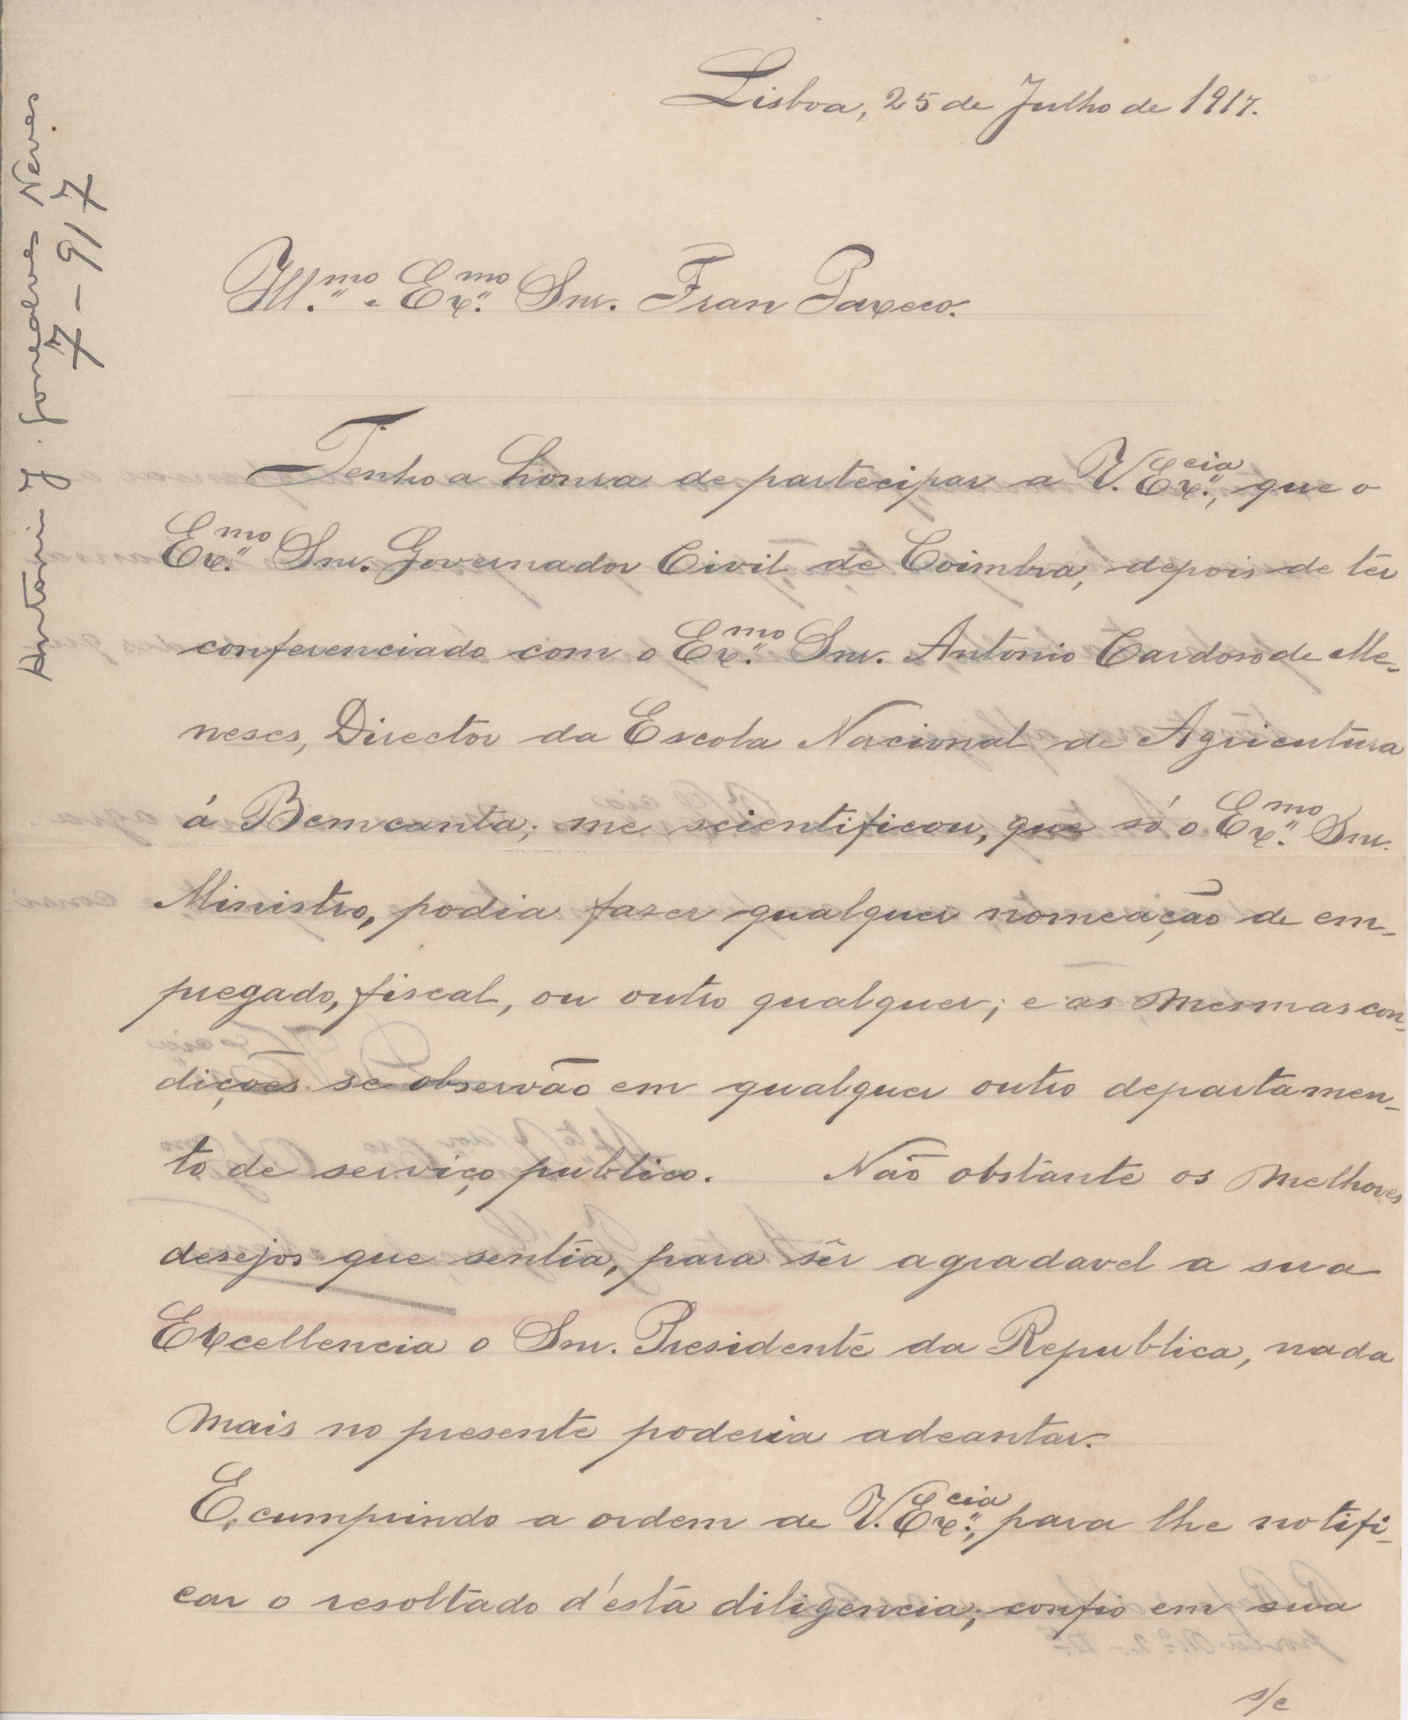 Lisboa, 25 de Julho de 1917.
Antonio J. Gonçalves Neves
7-917
Ill.mo e Ex.mo Snr. Fran Paxeco.
Tenho a honra de partecipar a V. Ex.cia, que o
Ex.mo Snr. Governador Civil de Coimbra, depois de têr
conferenciado com o Ex.mo Snr. Antonio Cardoso de Me-
neses, Director da Escola Nacional de Agricultura
á Bemcanta; me scientificou, que só o Ex.mo Snr.
Ministro, podia fazer qualquer nomeação de em-
pregado, fiscal, ou outro qualquer; e as mesmas con-
dições se observão em qualquer outro departamen-
to de serviço publico. Não obstante os melhores
desejos que sentia, para sêr agradavel a sua
Excellencia o Snr. Presidente da Republica, nada
mais no presente poderia adeantar.
E, cumprindo a ordem de V. Ex.cia, para lhe notifi-
car o resoltado d'ésta diligencia; confio em sua
s/c